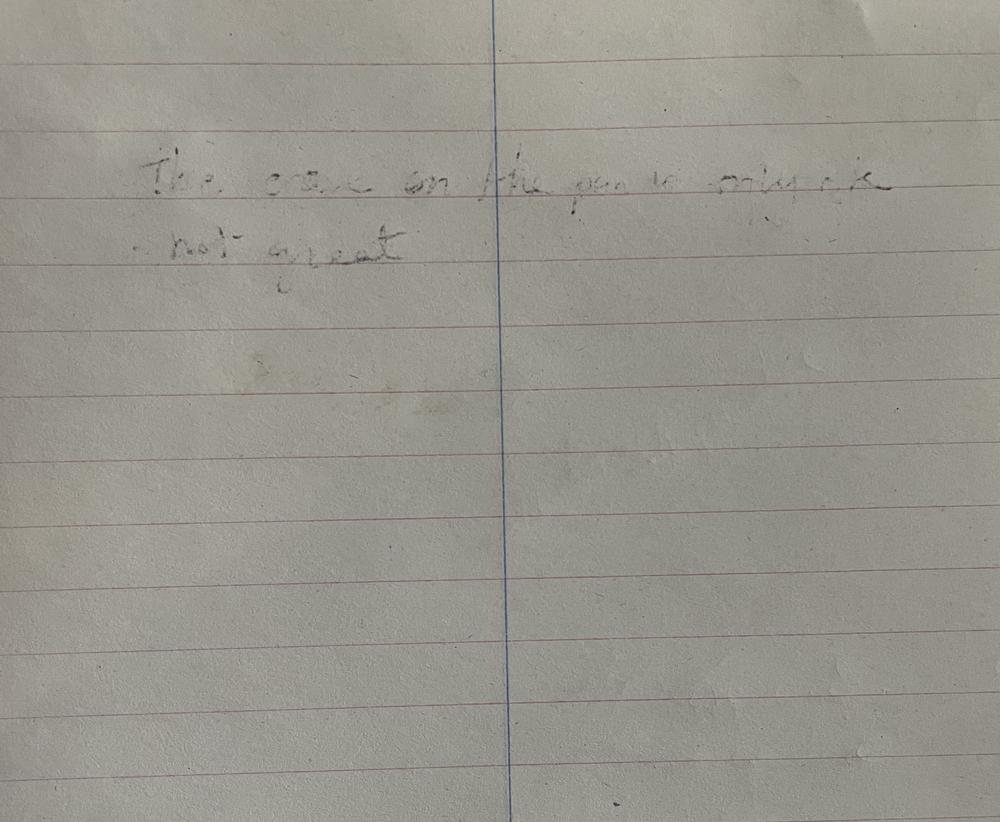 The erase on the pen is only ok
- not great